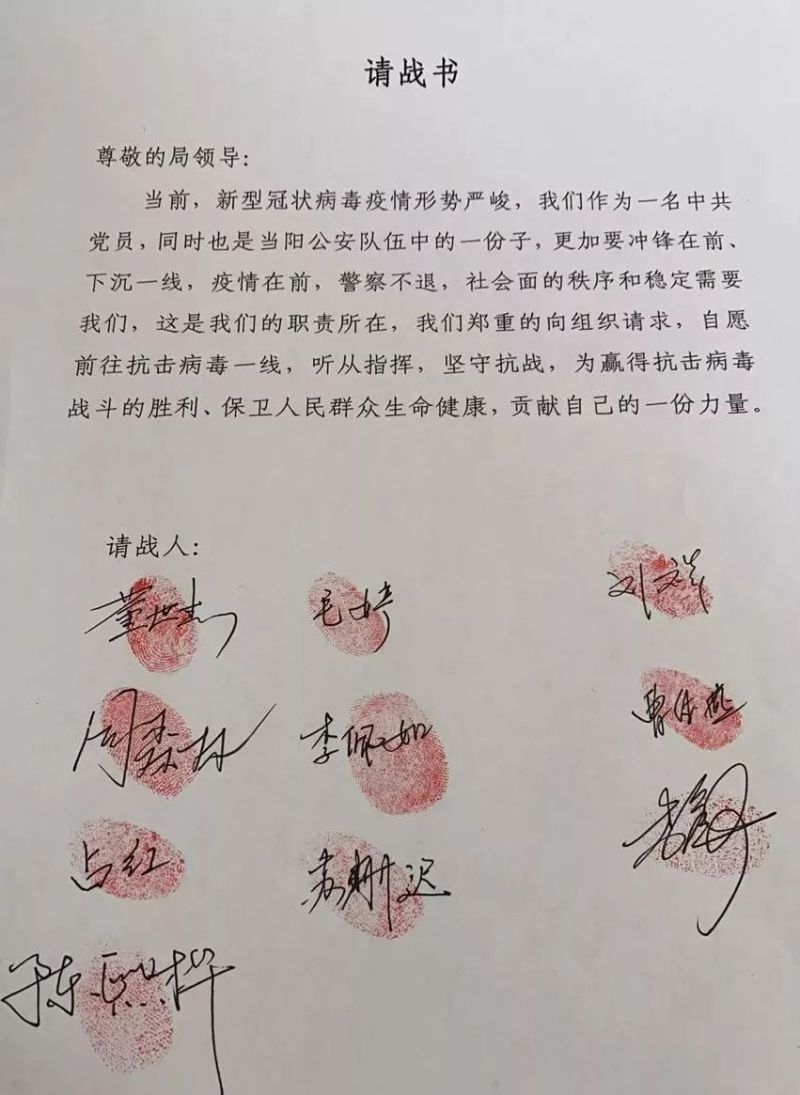 请战书
尊敬的局领导：
当前，新型冠状病毒疫情形势严峻，我们作为一名中共
党员，同时也是当阳公安队伍中的一份子，更加要冲锋在前、
下沉一线，疫情在前，警察不退，社会面的秩序和稳定需要
我们，这是我们的职责所在，我们郑重的向组织请求，自愿
前往抗击病毒一线，听从指挥，坚守抗战，为赢得抗击病毒
战斗的胜利、保卫人民群众生命健康，贡献自己的一份力量。
请战人：
董世杰 毛婷 刘文祥
周森林 李佩如
占红
陈熙桦